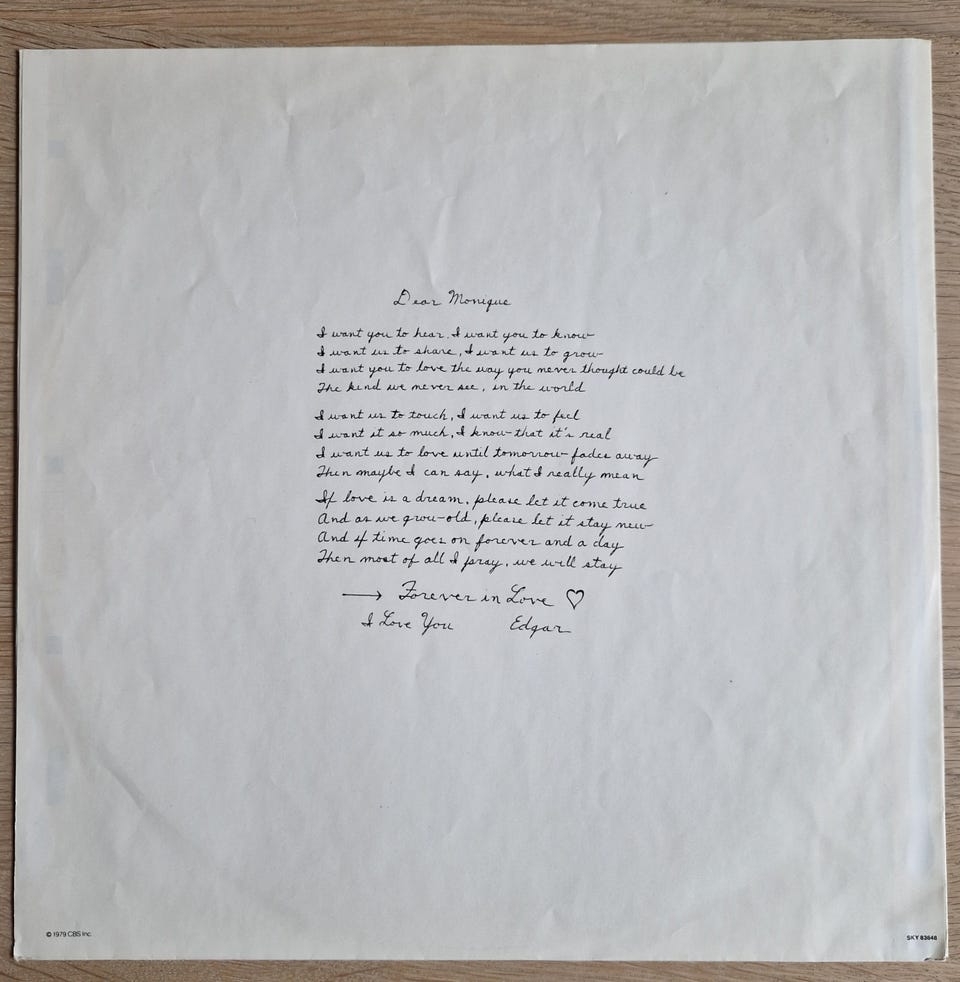 Dear Monique
I want you to hear, I want you to know
I want us to share, I want us to grow
I want you to love the way you never thought could be
The kind we never see, in the world
I want us to touch, I want us to feel
I want it so much, I know that it's real
I want us to love until tomorrow fades away
Then maybe I can say, what I really mean
If love is a dream, please let it come true
And as we grow old, please let it stay new
And if time goes on forever and a day
Then most of all I pray, we will stay
→ Forever in Love ♡
I Love You Edgar
© 1979 CBS Inc. SKY 83648